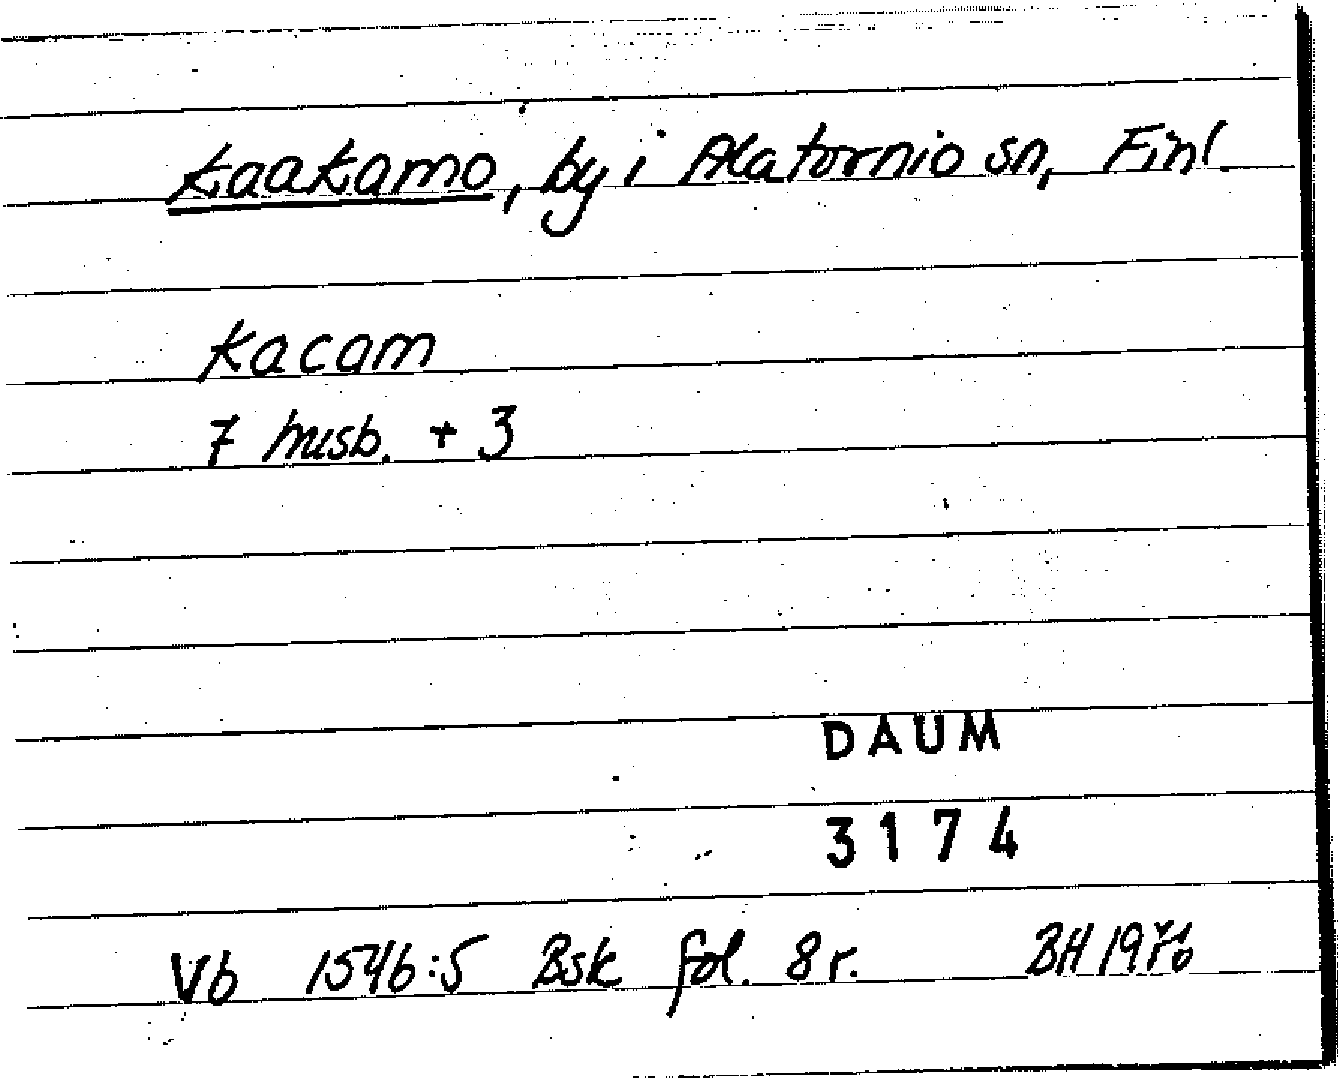 Kaakamo, by i Alatornio sn, Finl.
Kacam
7 husb. + 3
DAUM
3174
Vb 1546:5 Bsk fol. 8 r. BH 1976